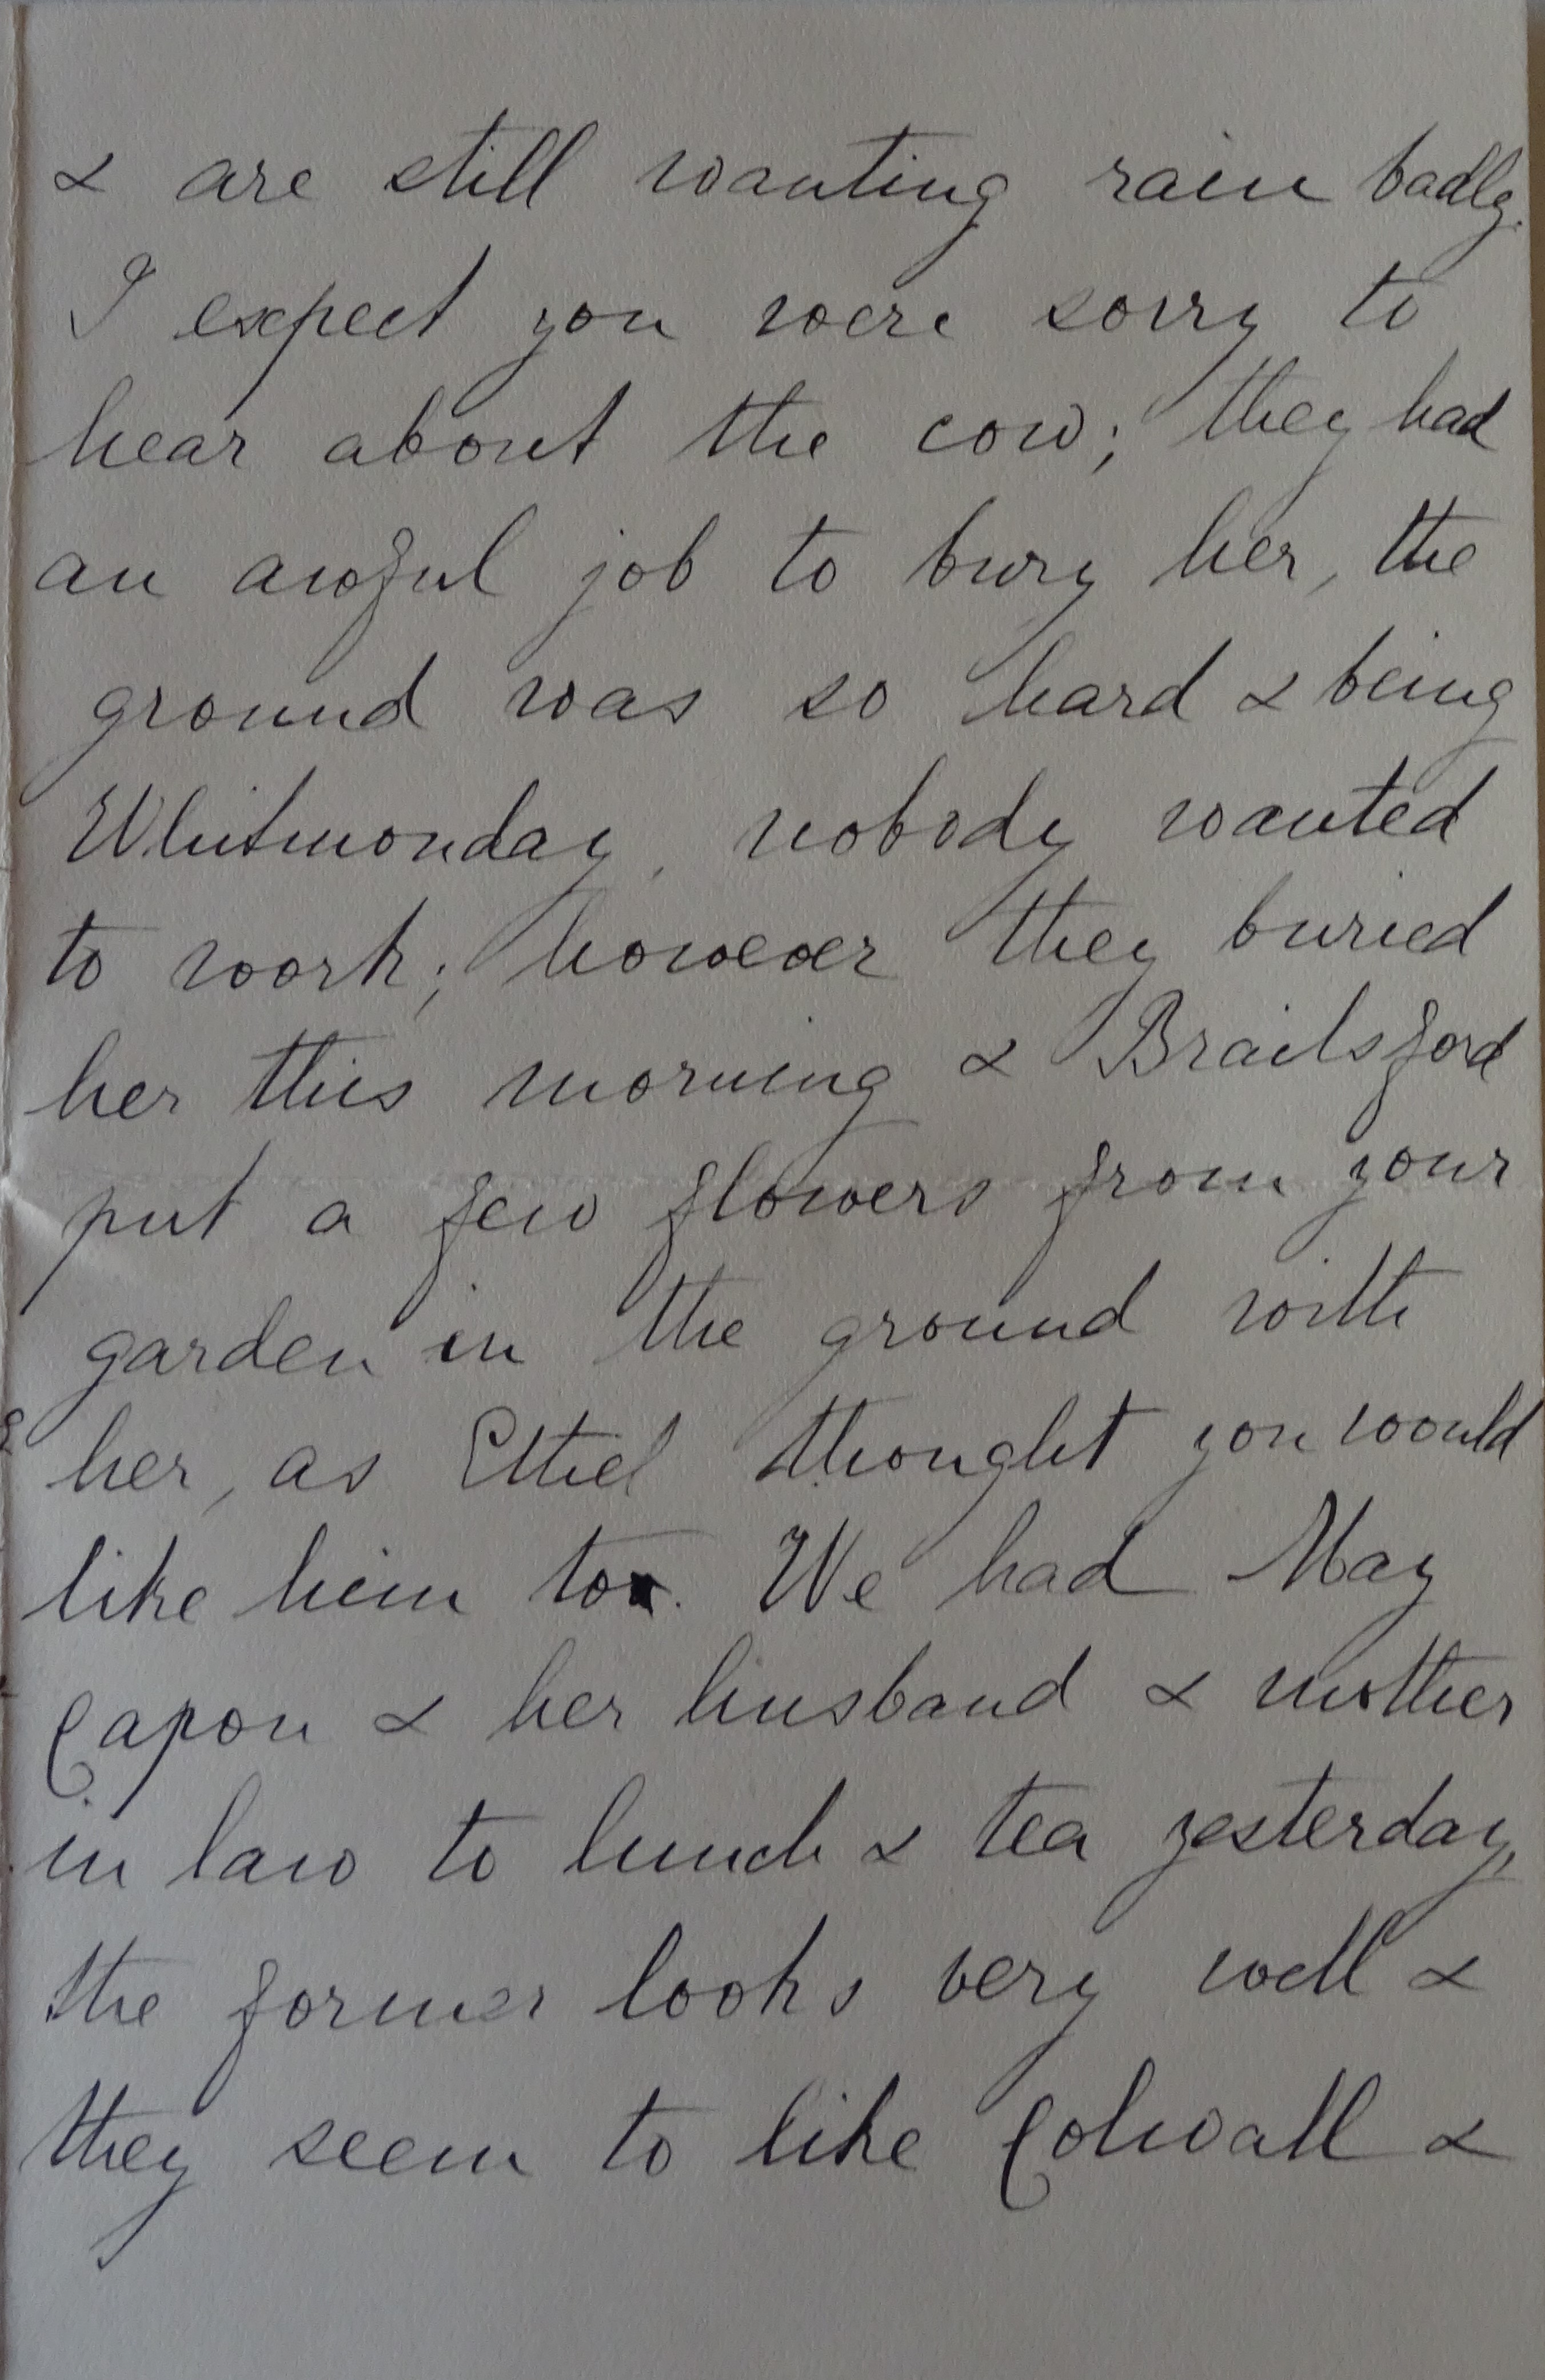 & are still wanting rain badly.
I expect you were sorry to
hear about the cow; they had
an awful job to bury her, the
ground was so hard & being
Whitmonday, nobody wanted
to work; however they buried
her this morning & Brailsford
put a few flowers from your
garden in the ground with
her, as Ethel thought you would
like him to. We had May
Capon & her husband & mother
in law to lunch & tea yesterday,
the former looks very well &
they seem to like Colwall &